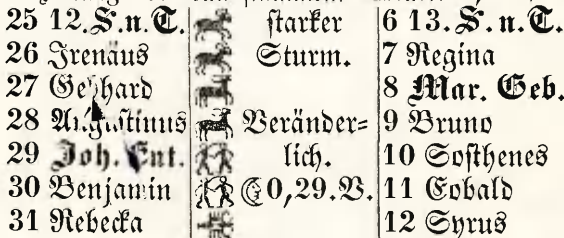 25 12. S. n. T. starker 6 13. S. n. T.
26 Irenäus Sturm. 7 Regina
27 Gebhard 8 Mar. Geb.
28 Augustinus Veränder= 9 Bruno
29 Joh. Ent. lich. 10 Sosthenes
30 Benjamin ☾ 0,29. V. 11 Eobald
31 Rebecka 12 Syrus